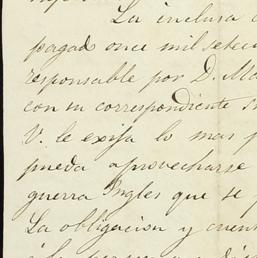 La inclusa
pagado once mil setec
responsable por D. Ma
con su correspondiente
V. le exija lo mas p
pueda aprovecharse
guerra Ingles que se p
La obligacion y cuen